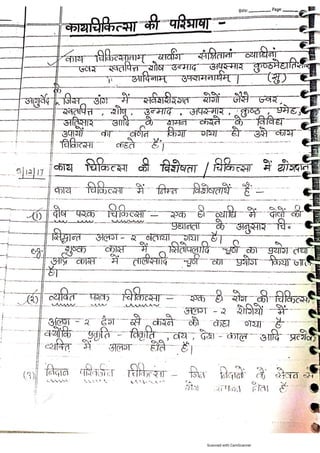 Date: Page
कायचिकित्सा की परिभाषा -
काय चिकित्सानाम् सर्वांग संश्रितानां व्याधिनां
ज्वर रक्तपित्त शोष उन्माद अपस्मार कुष्ठमेहातिसार
आदिनाम् उपशमनार्थम् । (सु)
आयुर्वेद के जिस अंग में सर्वशरीरगत रोगों जैसे ज्वर,
रक्तपित्त, शोष, उन्माद, अपस्मार, कुष्ठ, प्रमेह,
अतिसार आदि के शमन करने के विविध
उपायों का वर्णन किया गया हो उसे काय
चिकित्सा कहते हैं।
9/12/17 काय चिकित्सा की विशेषता / चिकित्सा में योगदान
काय चिकित्सा में निम्न विशेषतायें हैं -
(1) दोष परक चिकित्सा - एक ही व्याधि में दोषों की
प्रधानता के अनुसार चि.
सिद्धान्त अलग-2 बताया गया है।
शुष्क कास में सितोपलादि चूर्ण का प्रयोग तथा
आर्द्र कास में तालीसादि चूर्ण का प्रयोग किया जाता
है।
(2) व्यक्ति परक चिकित्सा - एक ही रोग की चिकित्सा
अलग-2 रोगियों में
अलग-2 ढंग से करने को कहा गया है
क्योंकि प्रकृति - विकृति, वय, देश - काल आदि प्रत्येक
व्यक्ति में अलग होते हैं।
(3) निदान परिवर्जन चिकित्सा - जिन निदानों के सेवन से
रोग उत्पन्न होता है
Scanned with CamScanner